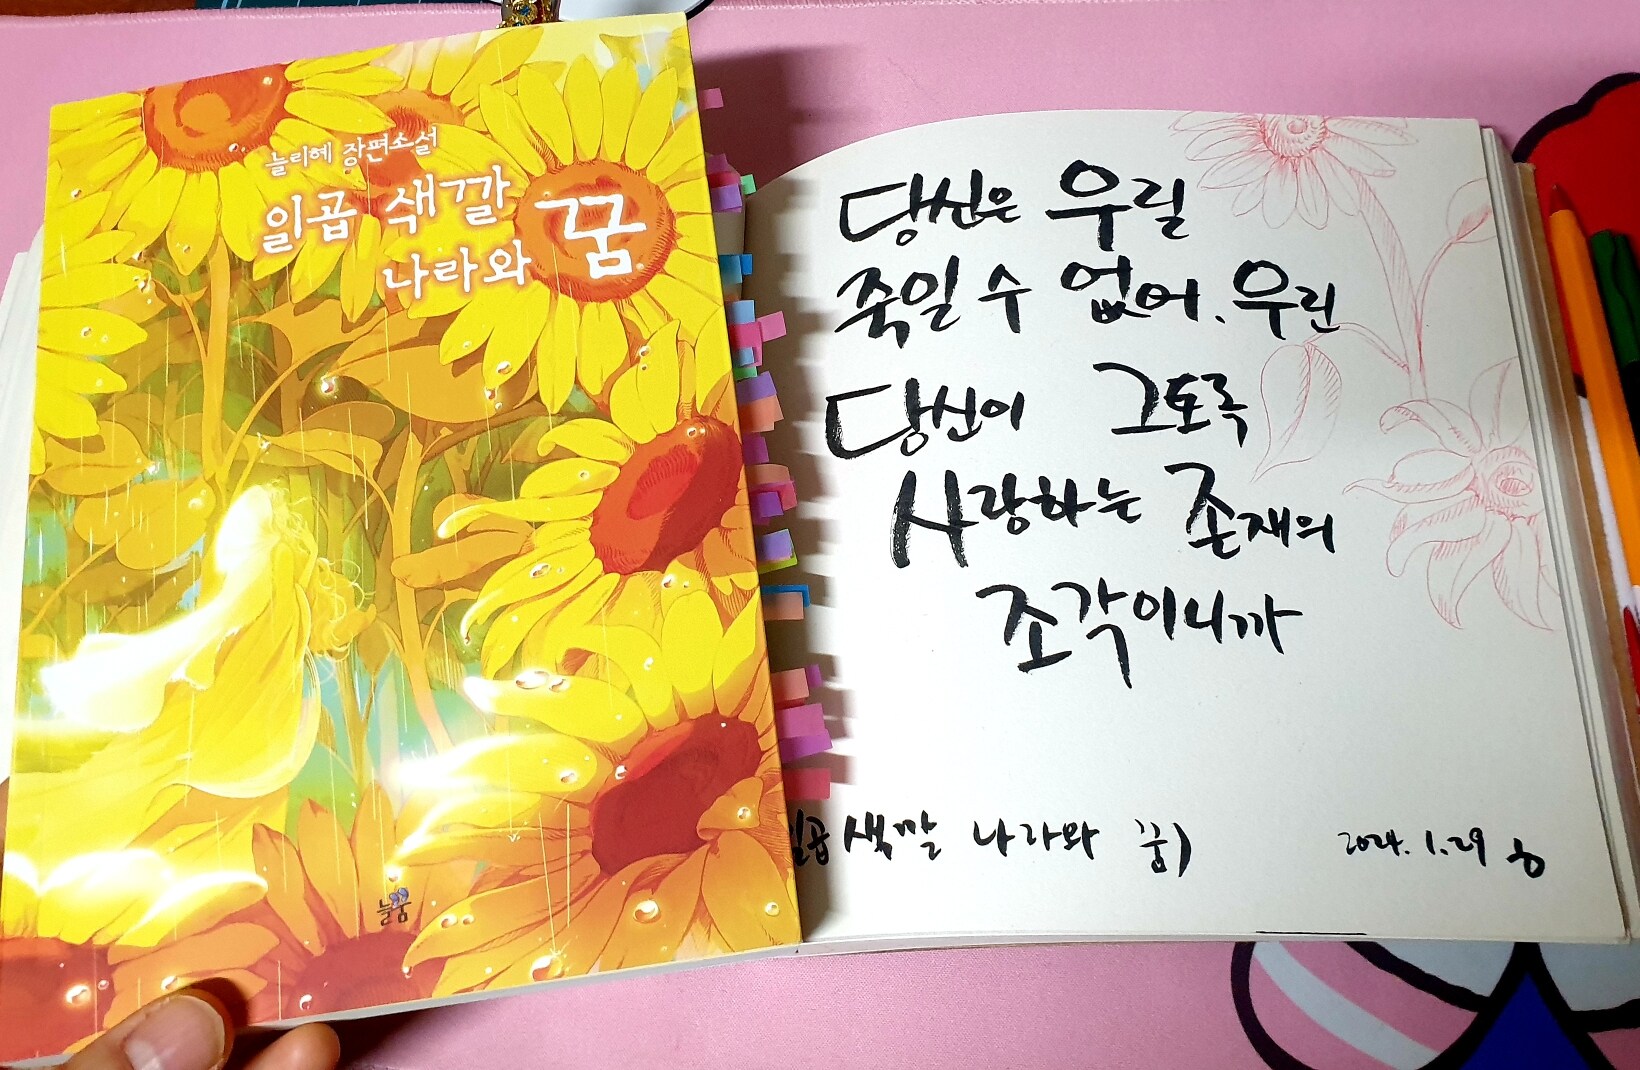 늘리혜 장편소설
일곱 색깔
나라와 꿈
늘꿈
당신은 우릴
죽일 수 없어. 우린
당신이 그토록
사랑하는 존재의
조각이니까
일곱 색깔 나라와 꿈)
2024. 1. 29